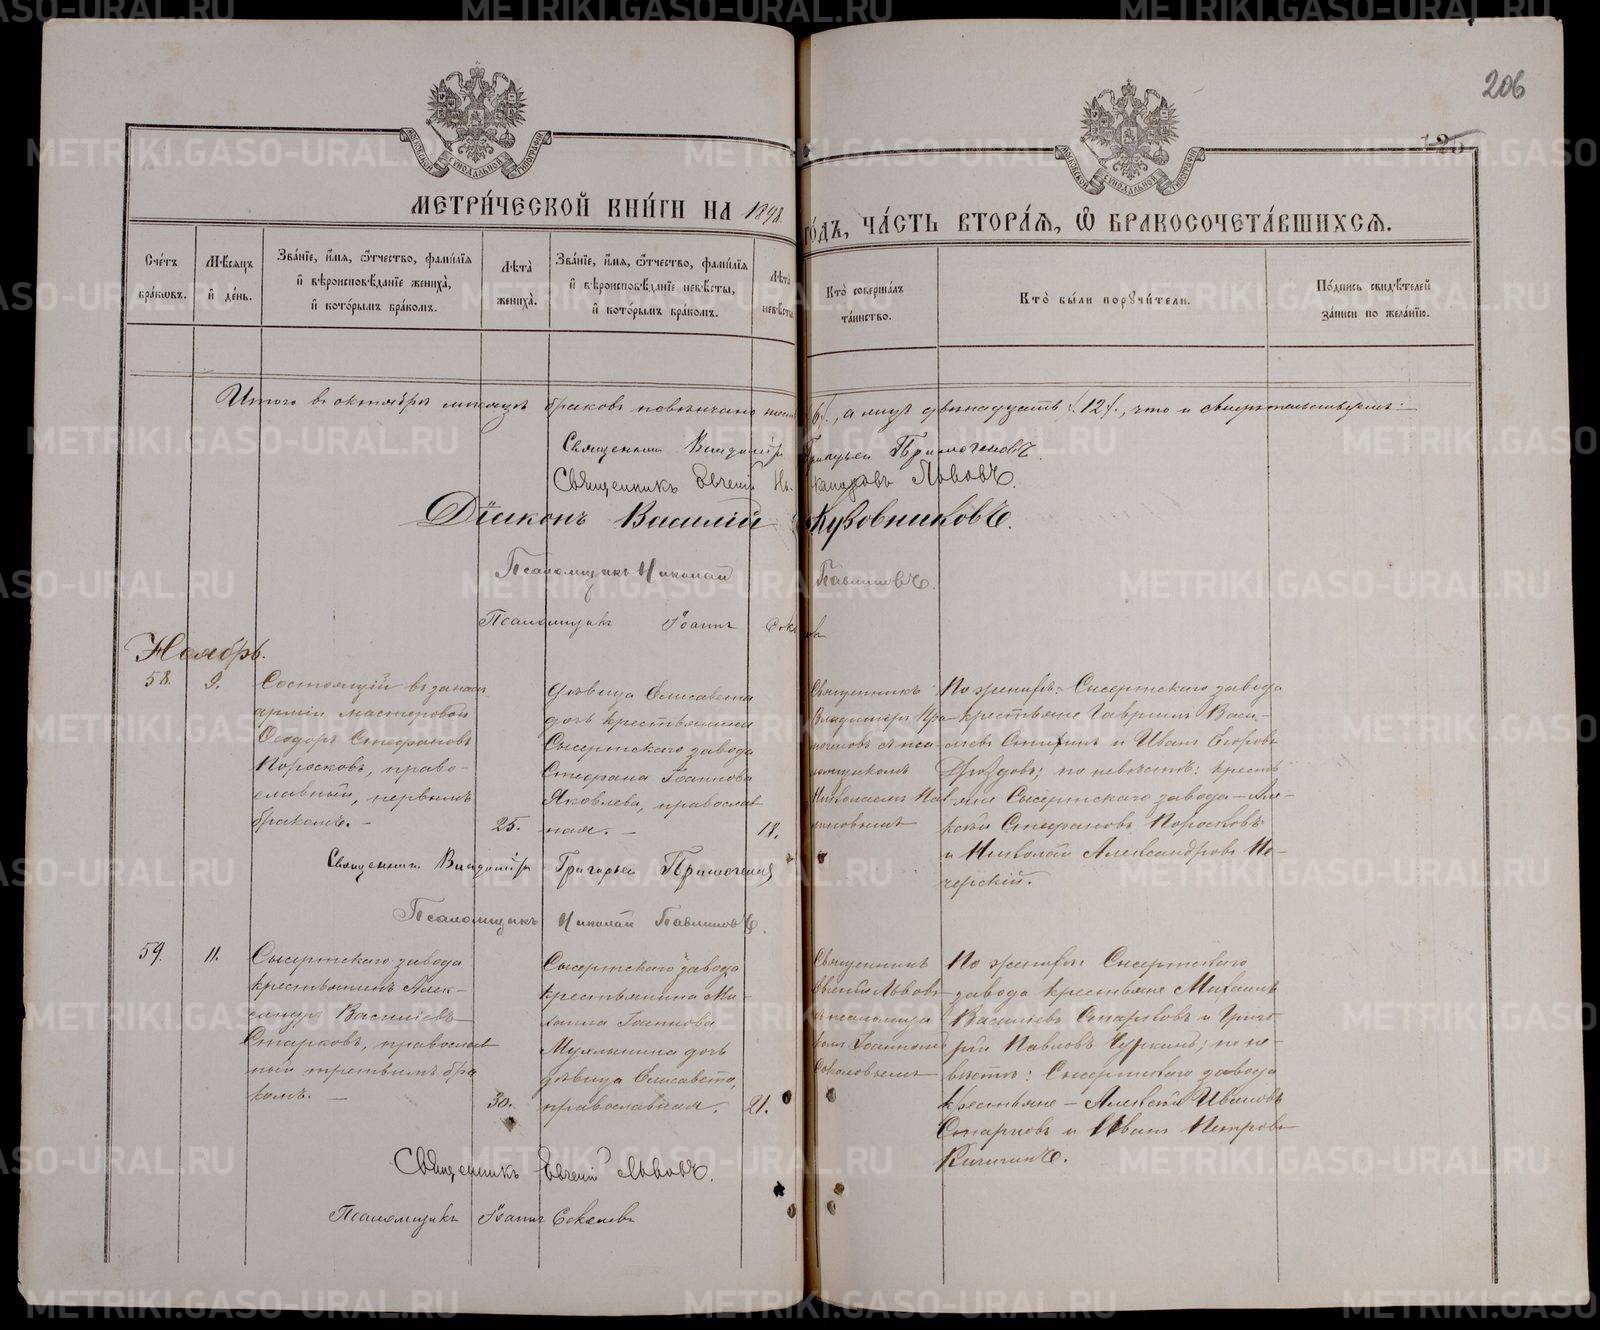 206
125
МЕТРИ́ЧЕСКОЙ КНИ́ГИ НА 1898 ГО́ДЪ, ЧА́СТЬ ВТОРА́Я, Ѽ БРАКОСОЧЕТА́ВШИХСЯ.
Сче́тъ бра́ковъ.
Мѣ́сяцъ и҆ де́нь.
Зва́нїе, и҆́мя, ѻ҆́тчество, фамѝлїя и҆ вѣроисповѣ́данїе жениха̀, и҆ кото́рымъ бра́комъ.
Лѣта̀ жениха̀.
Зва́нїе, и҆́мя, ѻ҆́тчество, фамѝлїя и҆ вѣроисповѣ́данїе невѣ́сты, и҆ кото́рымъ бра́комъ.
Лѣта̀ невѣ́сты
Кто̀ соверша́лъ та́инство.
Кто̀ бы́ли порꙋчи́тели.
По́дпись свидѣ́телей за́писи по жела́нїю.
Итого въ октябрѣ мѣсяцѣ браковъ повѣнчано шесть /6/, а лицъ двѣнадцать /12/, что и свидѣтельствуемъ:
Священникъ Владимiръ Григорьев Примогеновъ.
Священникъ Евгенiй Никандровъ Львовъ.
Дiаконъ Василiй Кузовниковъ.
Псаломщикъ Николай Павлиновъ.
Псаломщикъ Iоаннъ Соколовъ
Ноябрь.
58.
9.
Состоящiй въ запасѣ
армiи мастеровой
Ѳеодоръ Стефановъ
Поросковъ, право-
славный, первымъ
бракомъ. –
25.
дѣвица Елисавета
дочь крестьянина
Сысертскаго завода
Стефана Iоаннова
Яковлева, православ
ная. –
18.
Священникъ
Владимиръ При-
могеновъ съ пса-
ломщикомъ
Николаемъ Пав-
линовымъ
По женихѣ: Сысертскаго завода
крестьяне Гаврiилъ Васи-
льевъ и Иванъ Егоровъ
Дроздовъ; по невѣстѣ: кресть
яне Сысертскаго завода – Але-
ксѣй Стефановъ Поросковъ
и Николай Александровъ Пе-
черскiй.
Священникъ Владимiръ Григорьев Примогеновъ
Псаломщикъ Николай Павлиновъ.
59.
11.
Сысертскаго завода
крестьянинъ Алек-
сандръ Василiевъ
Старковъ, православ
ный третьимъ бра
комъ. –
30.
Сысертскаго завода
крестьянина Ми-
хаила Iоаннова
Мухлынина дочь
дѣвица Елисавета,
православная.
21.
Священникъ
Евгенiй Львовъ
съ псаломщи
комъ Iоанномъ
Соколовымъ
По женихѣ Сысертскаго
завода крестьяне Михаилъ
Василiевъ Старковъ и Григо-
рiй Павловъ Чуркинъ; по не-
вѣстѣ: Сысертскаго завода
крестьяне – Алексѣй Ивановъ
Старковъ и Иванъ Петровъ
Кичигинъ.
Священникъ Евгенiй Львовъ.
Псаломщикъ Iоаннъ Соколовъ
METRIKI.GASO-URAL.RU